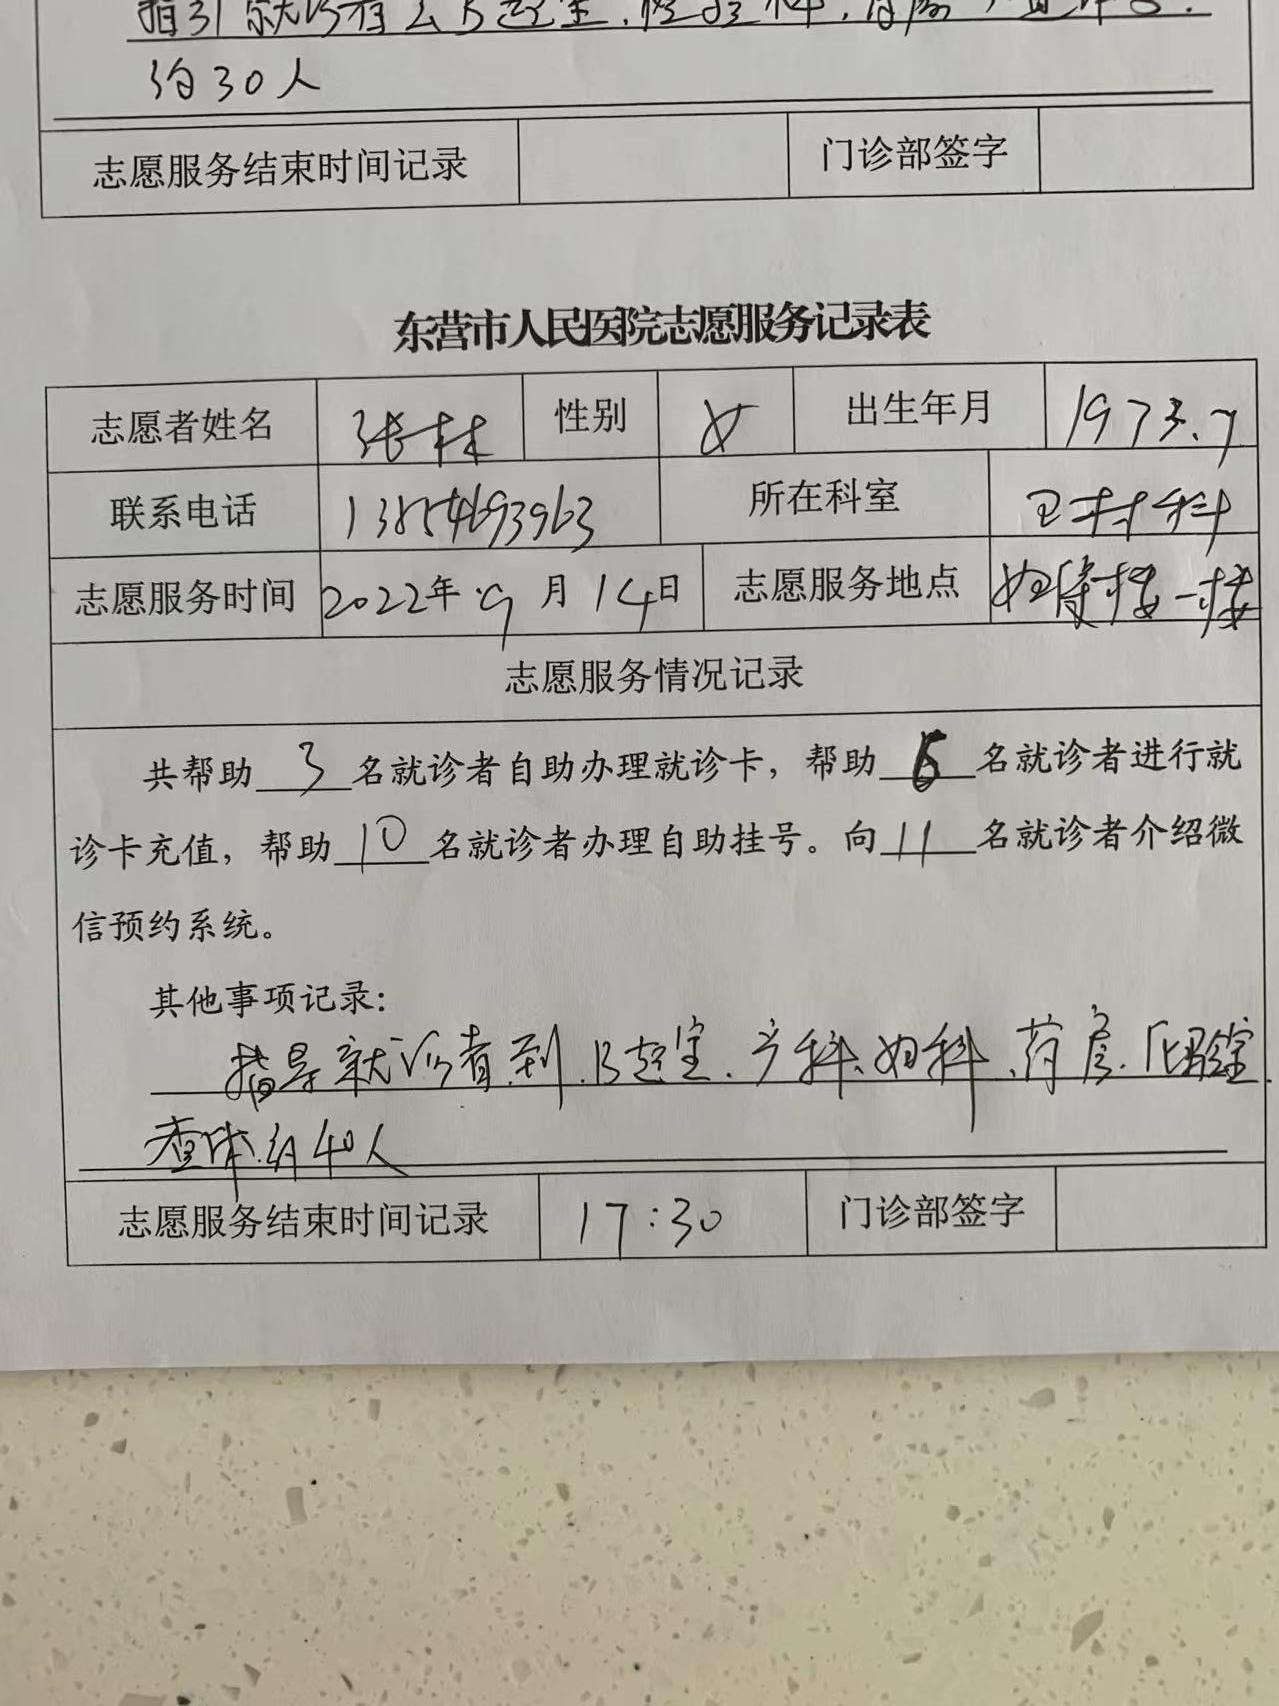 指引就诊者去B超室,检验科,
约30人
志愿服务结束时间记录 门诊部签字
东营市人民医院志愿服务记录表
志愿者姓名 张林 性别 女 出生年月 1973.7
联系电话 13854693963 所在科室 卫材科
志愿服务时间 2022年9月14日 志愿服务地点 妇产楼一楼
志愿服务情况记录
共帮助 3 名就诊者自助办理就诊卡,帮助 6 名就诊者进行就
诊卡充值,帮助 10 名就诊者办理自助挂号。向 11 名就诊者介绍微
信预约系统。
其他事项记录:
指导就诊者到B超室、产科、妇科、药房、化验室
查体约40人
志愿服务结束时间记录 17:30 门诊部签字